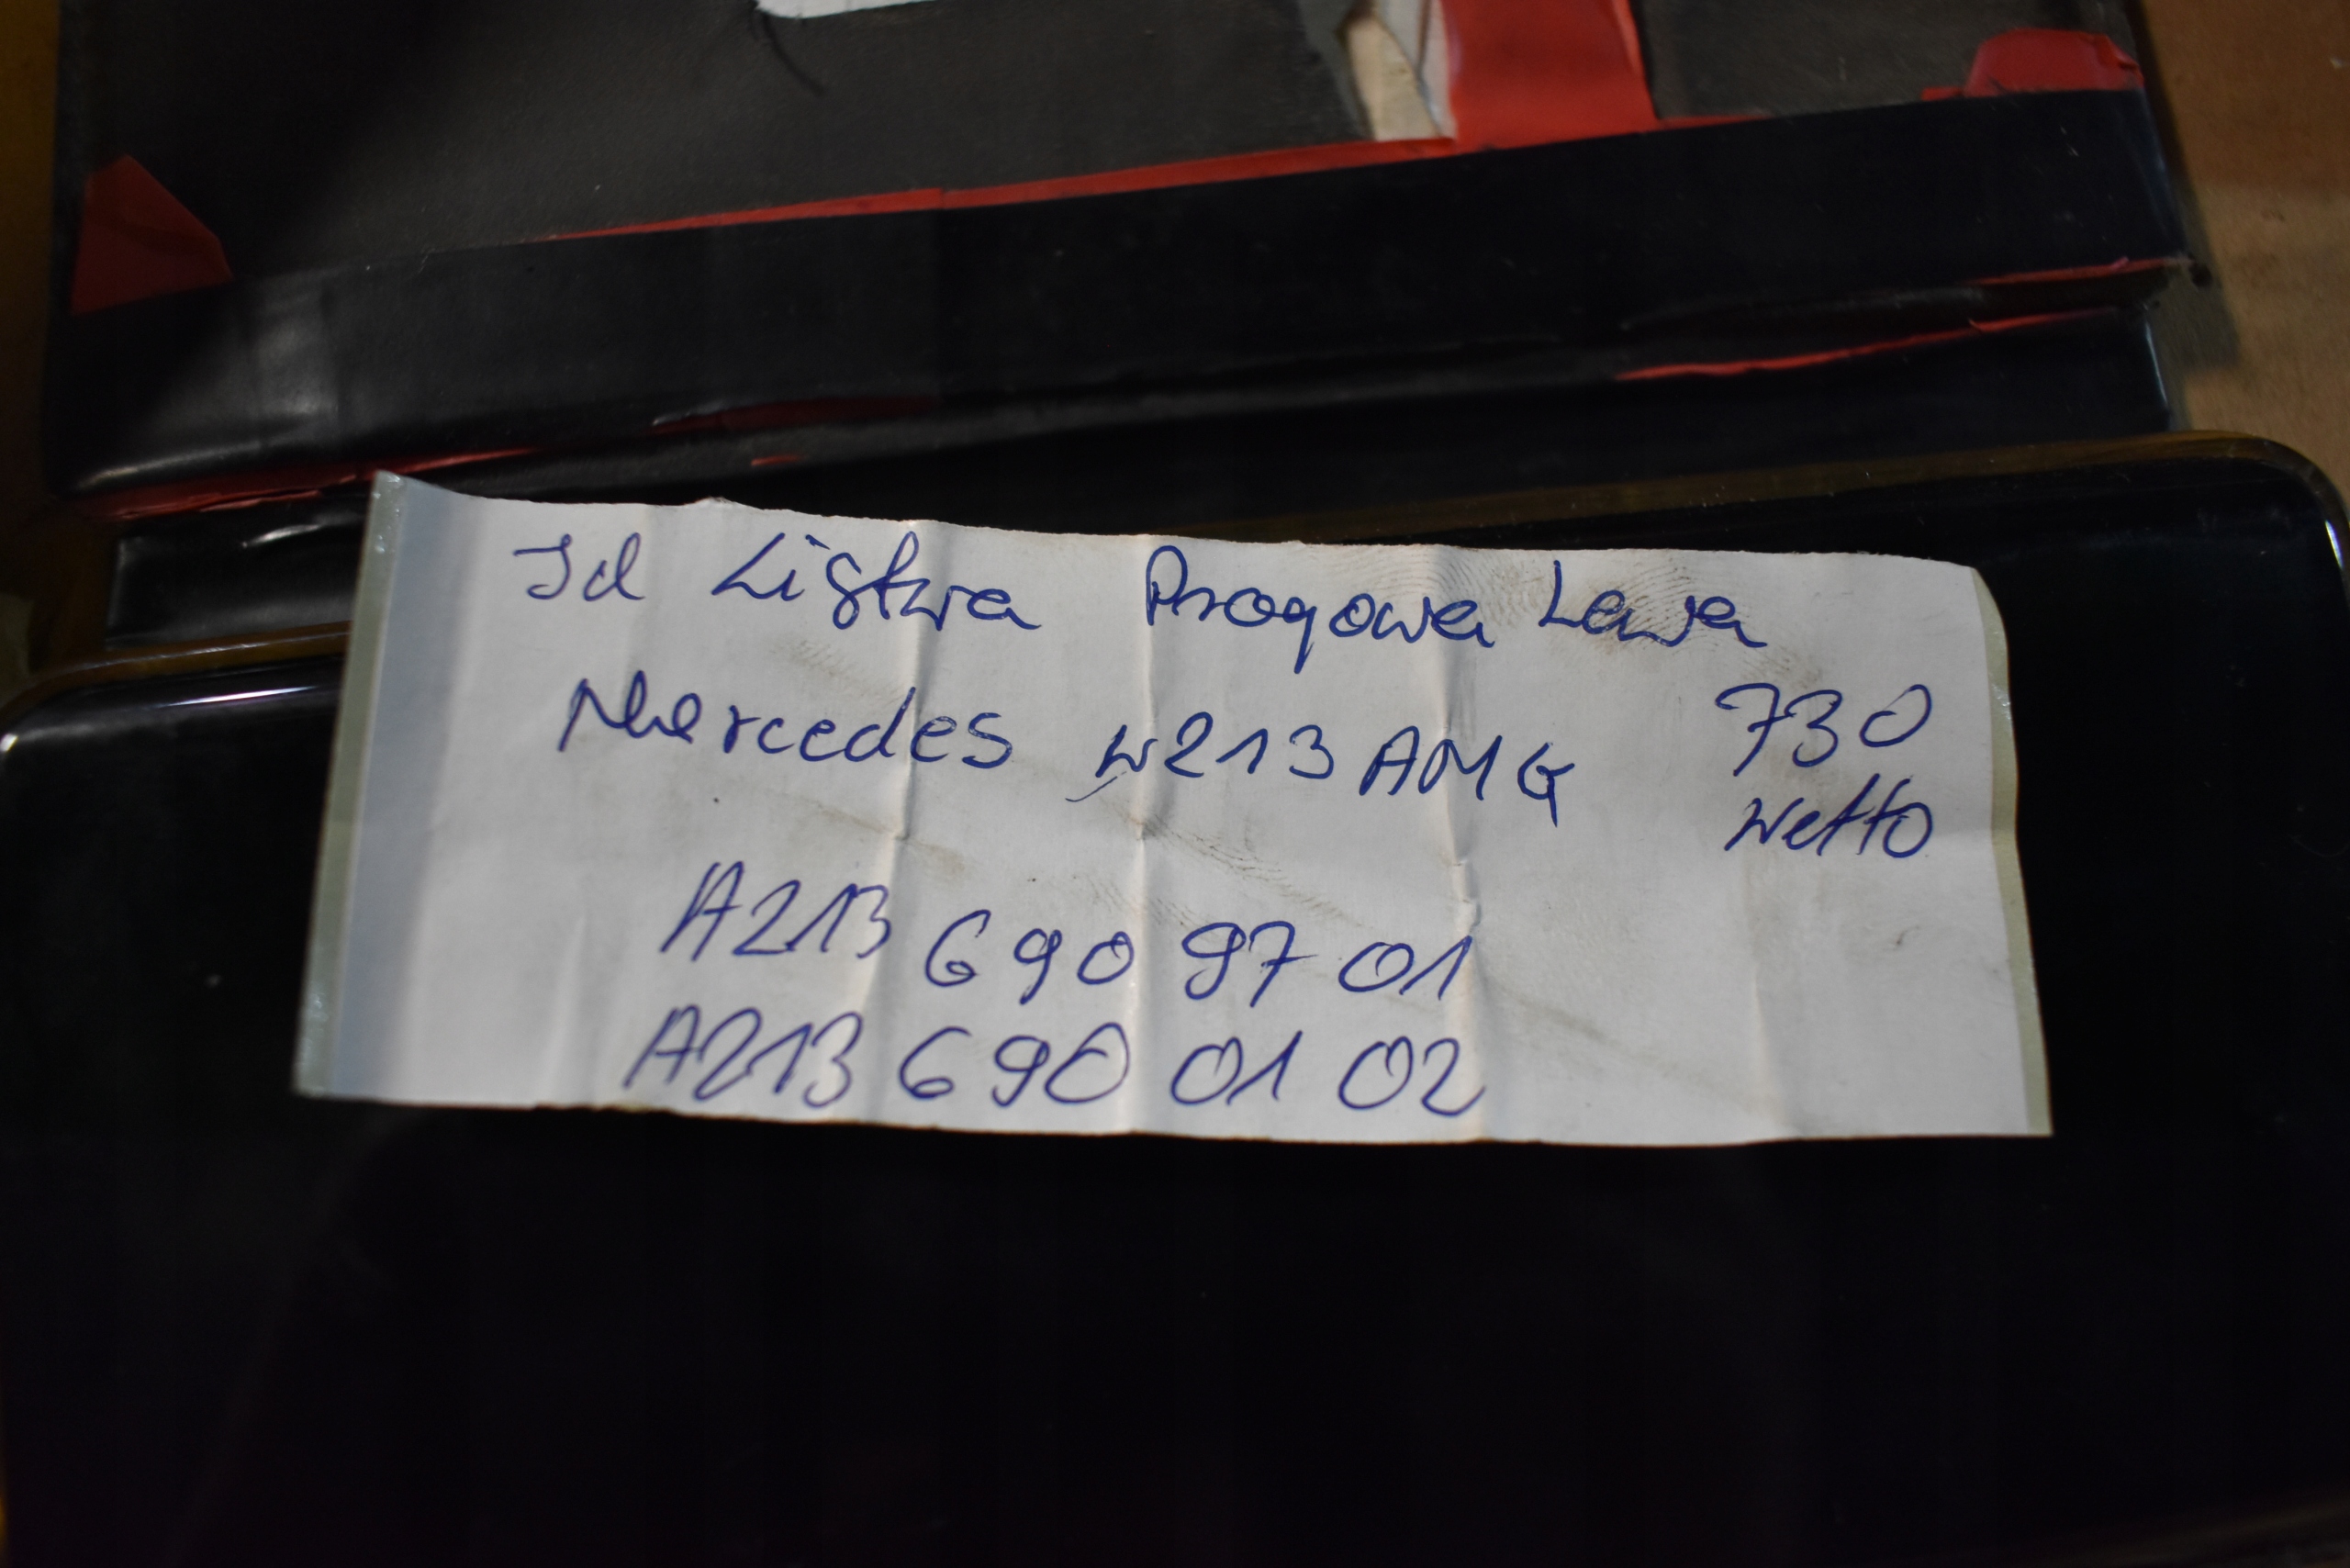 Id Listwa Progowa Lewa
Mercedes W213 AMG 730
netto
A213 690 97 01
A213 690 01 02